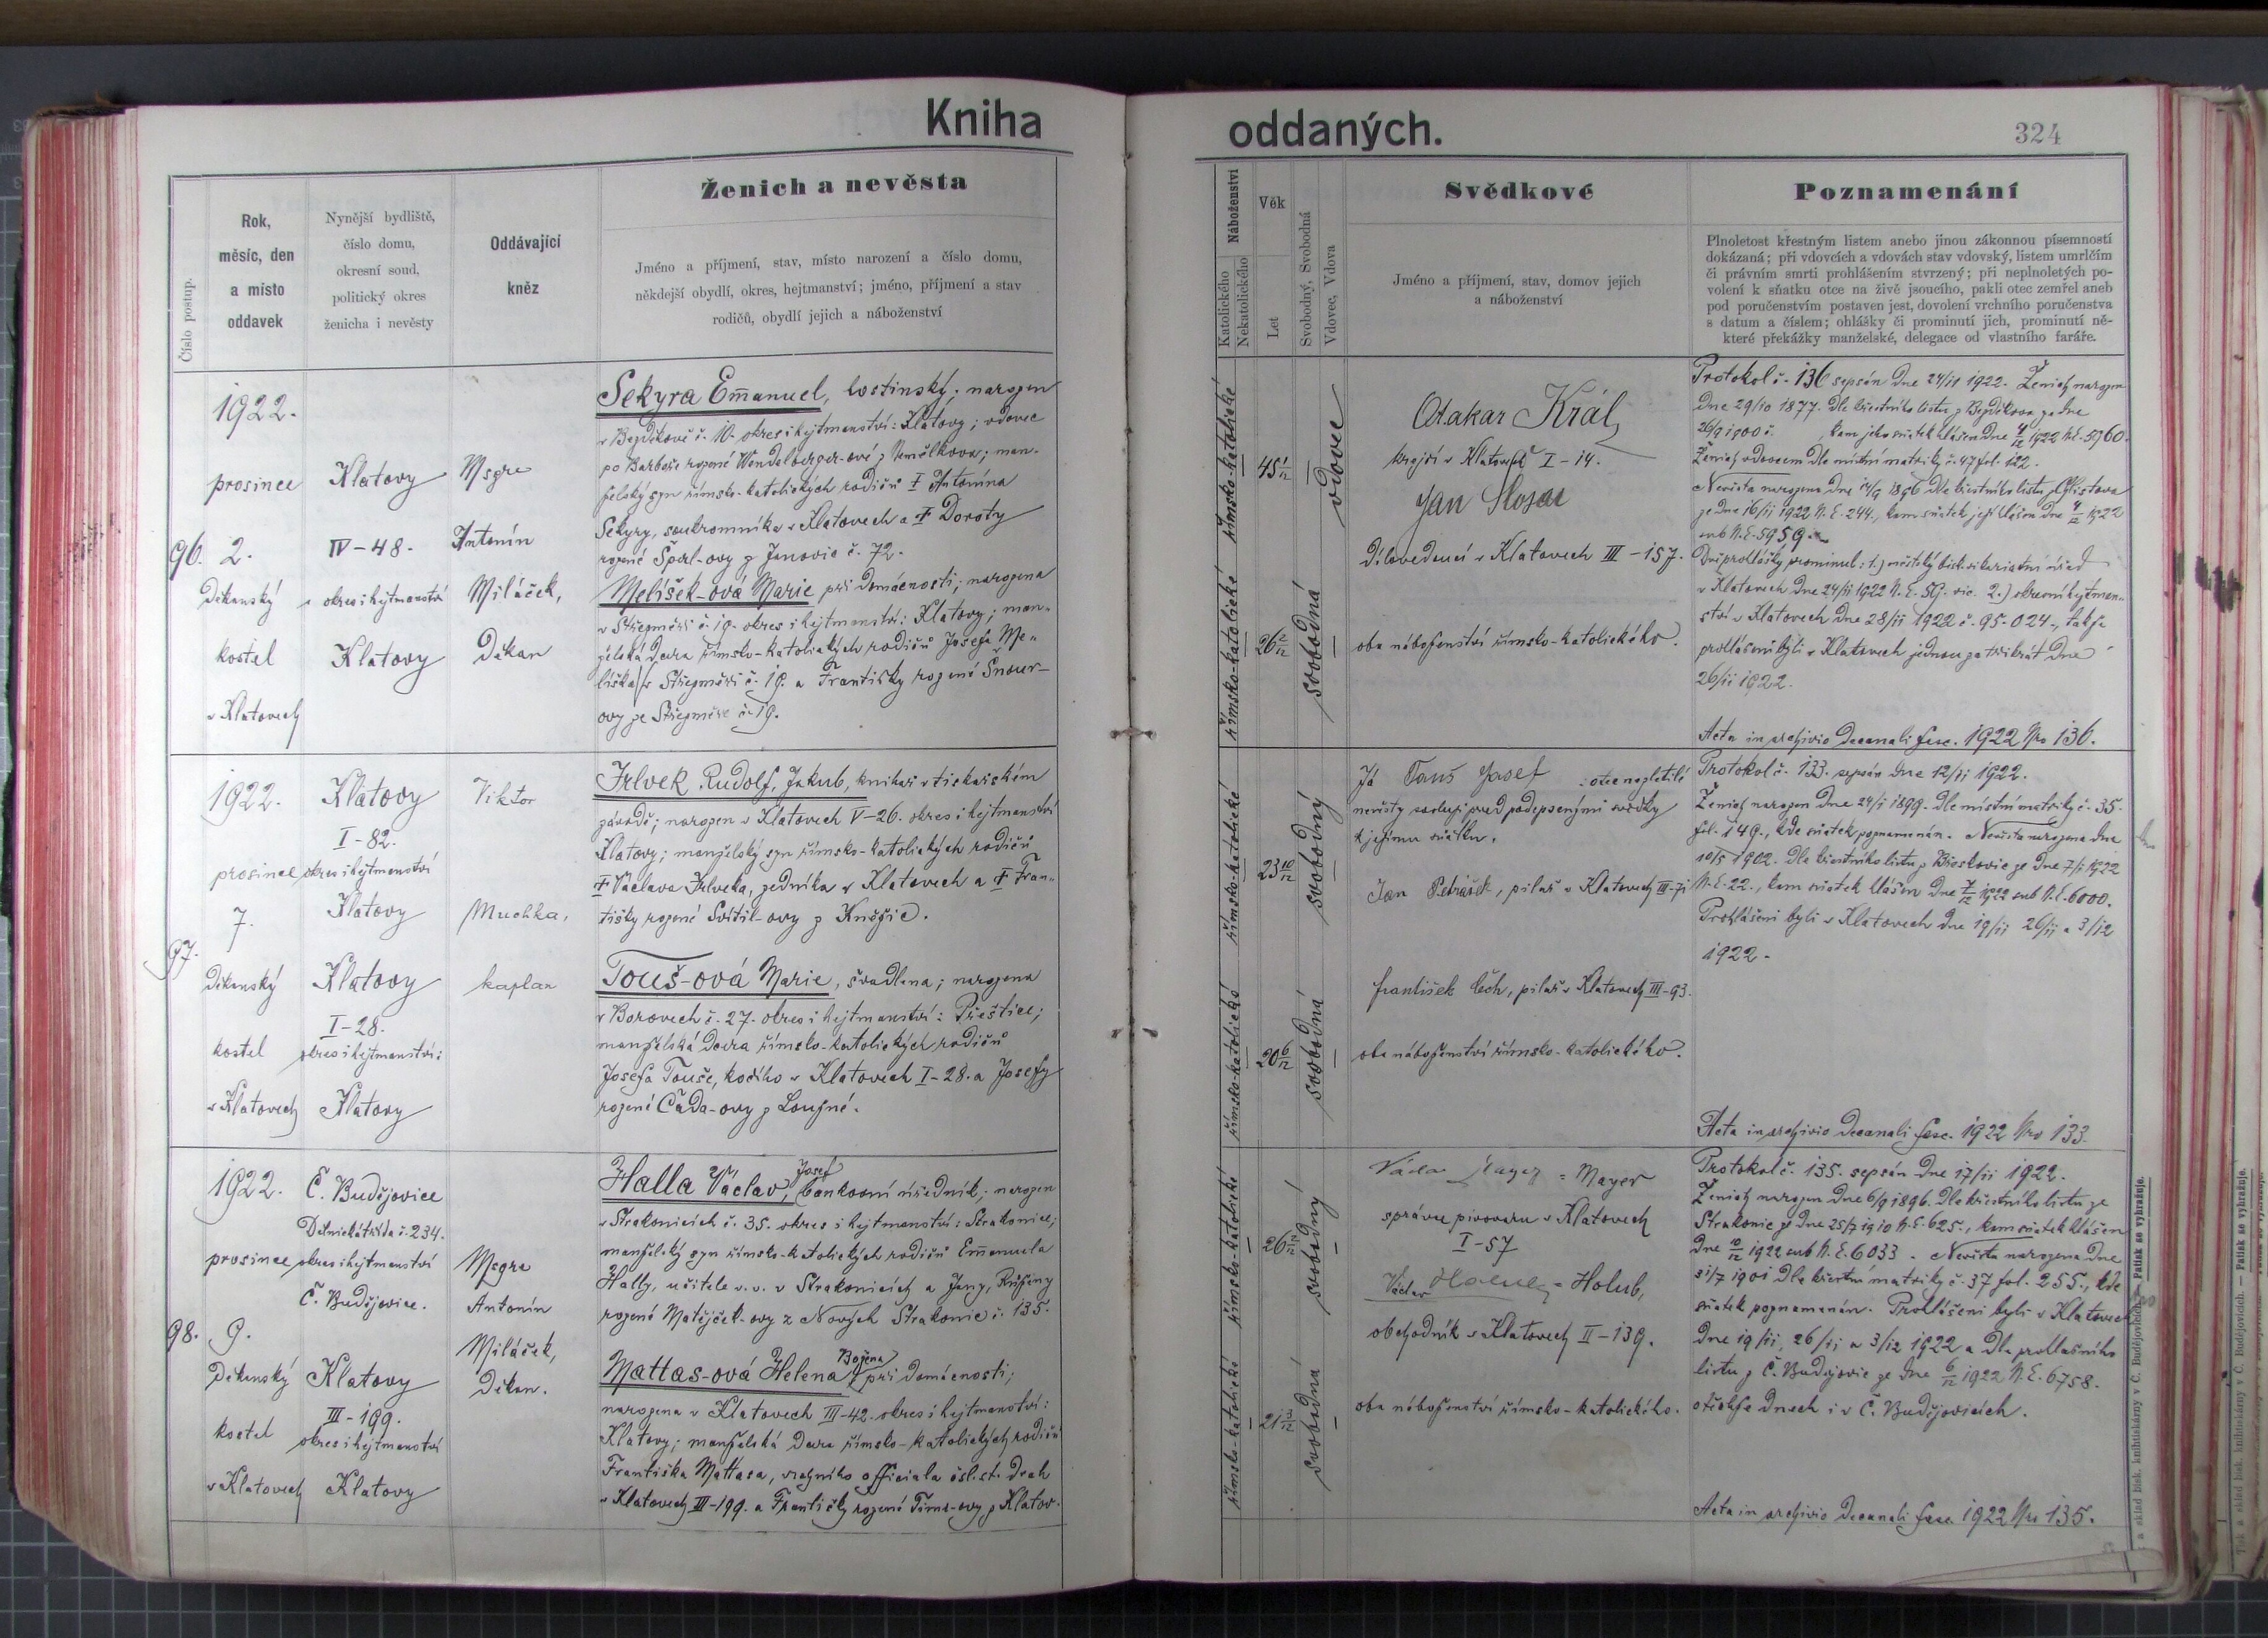 Kniha
oddaných.
324
Číslo postup.
Rok,
měsíc, den
a místo
oddavek
Nynější bydliště,
číslo domu,
okresní soud,
politický okres
ženicha i nevěsty
Oddávající
kněz
Ženich a nevěsta
Jméno a příjmení, stav, místo narození a číslo domu,
někdejší obydlí, okres, hejtmanství; jméno, příjmení a stav
rodičů, obydlí jejich a náboženství
Náboženství
Katolického
Nekatolického
Věk
Let
Svobodný, Svobodná
Vdovec, Vdova
Svědkové
Jméno a příjmení, stav, domov jejich
a náboženství
Poznamenání
Plnoletost křestným listem anebo jinou zákonnou písemností
dokázaná; při vdovcích a vdovách stav vdovský, listem umrlčím
či právním smrti prohlášením stvrzený; při neplnoletých po-
volení k sňatku otce na živě jsoucího, pakli otec zemřel aneb
pod poručenstvím postaven jest, dovolení vrchního poručenstva
s datum a číslem; ohlášky či prominutí jich, prominutí ně-
které překážky manželské, delegace od vlastního faráře.
96.
1922.
prosince
2.
Děkanský
kostel
v Klatovech
Klatovy
IV-48.
okres i hejtmanství
Klatovy
Msgre
Antonín
Miláček,
Děkan
Sekyra Emanuel, hostinský; narozen
v Bezděkově č. 10. okres i hejtmanství: Klatovy; vdovec
po Barboře rozené Wendelberger-ové z Nemilkova; man-
želský syn římsko-katolických rodičů † Antonína
Sekyry, soukromníka v Klatovech a † Doroty
rozené Šperl-ovy z Janovic č. 72.
Melíšek-ová Marie při domácnosti; narozena
v Střezměři č. 19. okres i hejtmanství: Klatovy; man-
želská dcera římsko-katolických rodičů Josefa Me-
líška v Střezměři č. 19. a Františky rozené Šnour-
ovy ze Střezměře č. 19.
římsko-katolické
římsko-katolické
45 1/12
26 2/12
vdovec
svobodná
Otakar Král
krejčí v Klatovech I-14.
Jan
Dílovedoucí v Klatovech III-157.
oba náboženství římsko-katolického.
Protokol č. 136 sepsán dne 24/11 1922. Ženich narozen
dne 29/10 1877. dle křestního listu z Bezděkova ze dne
26/9 1900 č. , kam jeho sňatek hlášen dne 4/12 1922 N.E. 5960.
Ženich vdovcem dle místní matriky č. 47 fol. 122.
Nevěsta narozena dne 14/9 1896 dle křestního listu z
ze dne 16/11 1922 N.E. 244., kam sňatek její hlášen dne 4/12 1922
sub N.E. 5959.
Dvě prohlášky prominul: 1.) městský bisk. vikariátní úřad
v Klatovech dne 24/11 1922 N.E. 59. vic. 2.) okresní hejtman-
ství v Klatovech dne 28/11 1922 č. 95.024., takže
prohlášeni byli v Klatovech jednou za třikrát dne
26/11 1922.
Acta in archivio decanali fasc. 1922 Nro 136.
97.
1922.
prosince
7.
Děkanský
kostel
v Klatovech
Klatovy
I-82.
okres i hejtmanství
Klatovy
Klatovy
I-28.
okres i hejtmanství:
Klatovy
Viktor
Muchka,
kaplan
Jrlvek Rudolf, Jakub, knihař v tiskařském
závodě; narozen v Klatovech V-26. okres i hejtmanství
Klatovy; manželský syn římsko-katolických rodičů
† Václava Jrlveka, zedníka v Klatovech a † Fran-
tišky rozené Svítil-ovy z Kněžic.
Touš-ová Marie, švadlena; narozena
v Borovech č. 27. okres i hejtmanství: Přeštice;
manželská dcera římsko-katolických rodičů
Josefa Touše, kočího v Klatovech I-28. a Josefy
rozené Čada-ovy z Loužné.
římsko-katolické
římsko-katolické
23 10/12
20 6/12
svobodný
svobodná
Já Touš Josef : otec nezletilé
nevěsty svoluji před podepsanými svědky
k jejímu sňatku.
Jan Petrášek, pilař v Klatovech III-71
František Čech, pilař v Klatovech III-93.
oba náboženství římsko-katolického.
Protokol č. 133. sepsán dne 12/11 1922.
Ženich narozen dne 24/1 1899. dle místní matriky č. 35.
fol. 149., kde sňatek poznamenán. Nevěsta narozena dne
10/5 1902. dle křestního listu z ze dne 7/11 1922
N.E. 22., kam sňatek hlášen dne 7/12 1922 sub N.E. 6000.
Prohlášeni byli v Klatovech dne 19/11 26/11 a 3/12
1922.
Acta in archivio decanali fasc. 1922 Nro 133.
98.
1922.
prosince
9.
Děkanský
kostel
v Klatovech
Č. Budějovice
Dělnická třída č. 234.
okres i hejtmanství
Č. Budějovice.
Klatovy
III-199.
okres i hejtmanství
Klatovy
Msgre
Antonín
Miláček,
Děkan.
Josef
Halla Václav, bankovní úředník; narozen
v Strakonicích č. 35. okres i hejtmanství: Strakonice;
manželský syn římsko-katolických rodičů Emanuela
Hally, učitele v.v. v Strakonicích a Jany, Růženy
rozené Matějček-ovy z Nových Strakonic č. 135.
Božena
Mattas-ová Helena při domácnosti;
narozena v Klatovech III-42. okres i hejtmanství:
Klatovy; manželská dcera římsko-katolických rodičů
Františka Mattasa, vrchního officiala čsl. st. drah
v Klatovech III-199. a Františky rozené Tůma-ovy z Klatov.
římsko-katolické
římsko-katolické
26
21
svobodný
svobodná
Václav Mayer = Mayer
správce pivovaru v Klatovech
I-57
Václav Holub = Holub,
obchodník v Klatovech II-139.
oba náboženství římsko-katolického.
Protokol č. 135. sepsán dne 17/11 1922.
Ženich narozen dne 6/9 1896. dle křestního listu ze
Strakonic ze dne 25/7 1910 N.E. 625., kam sňatek hlášen
dne 10/12 1922 sub N.E. 6033. Nevěsta narozena dne
31/7 1901 dle křestní matriky č. 37 fol. 255., kde
sňatek poznamenán. Prohlášeni byli v Klatovech
dne 19/11, 26/11 a 3/12 1922 a dle prohlašního
listu z Č. Budějovic ze dne 6/12 1922 N.E. 6758.
v Č. Budějovicích.
Acta in archivio decanali fasc. 1922 Nro 135.
a sklad bisk. knihtiskárny v Č. Budějovicích. — Patisk se vyhražuje.
Tisk a sklad bisk. knihtiskárny v Č. Budějovicích. — Patisk se vyhražuje.